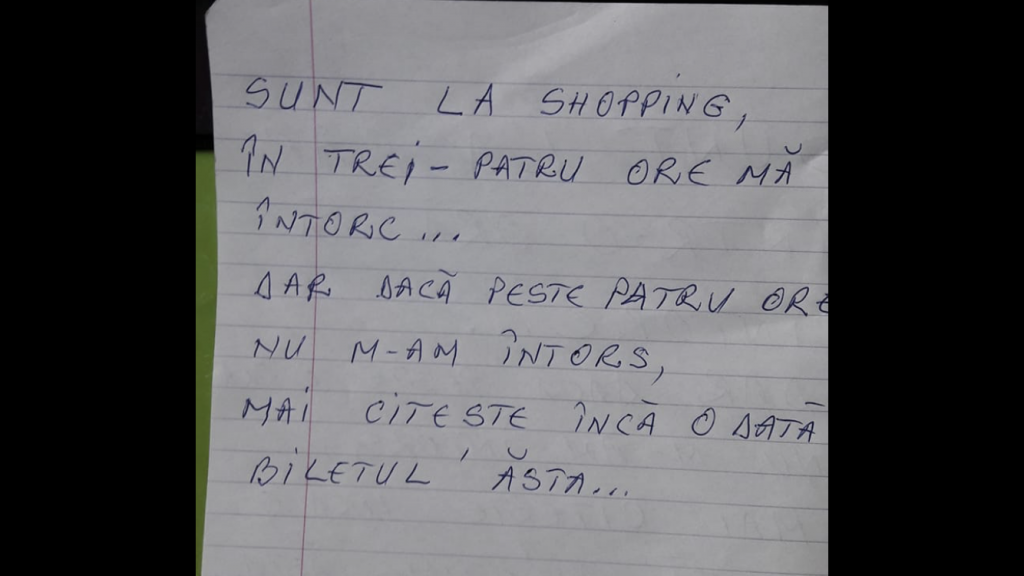 SUNT LA SHOPPING,
ÎN TREI-PATRU ORE MĂ
ÎNTORC...
DAR DACĂ PESTE PATRU ORE
NU M-AM ÎNTORS,
MAI CITEȘTE ÎNCĂ O DATĂ
BILETUL ĂSTA...